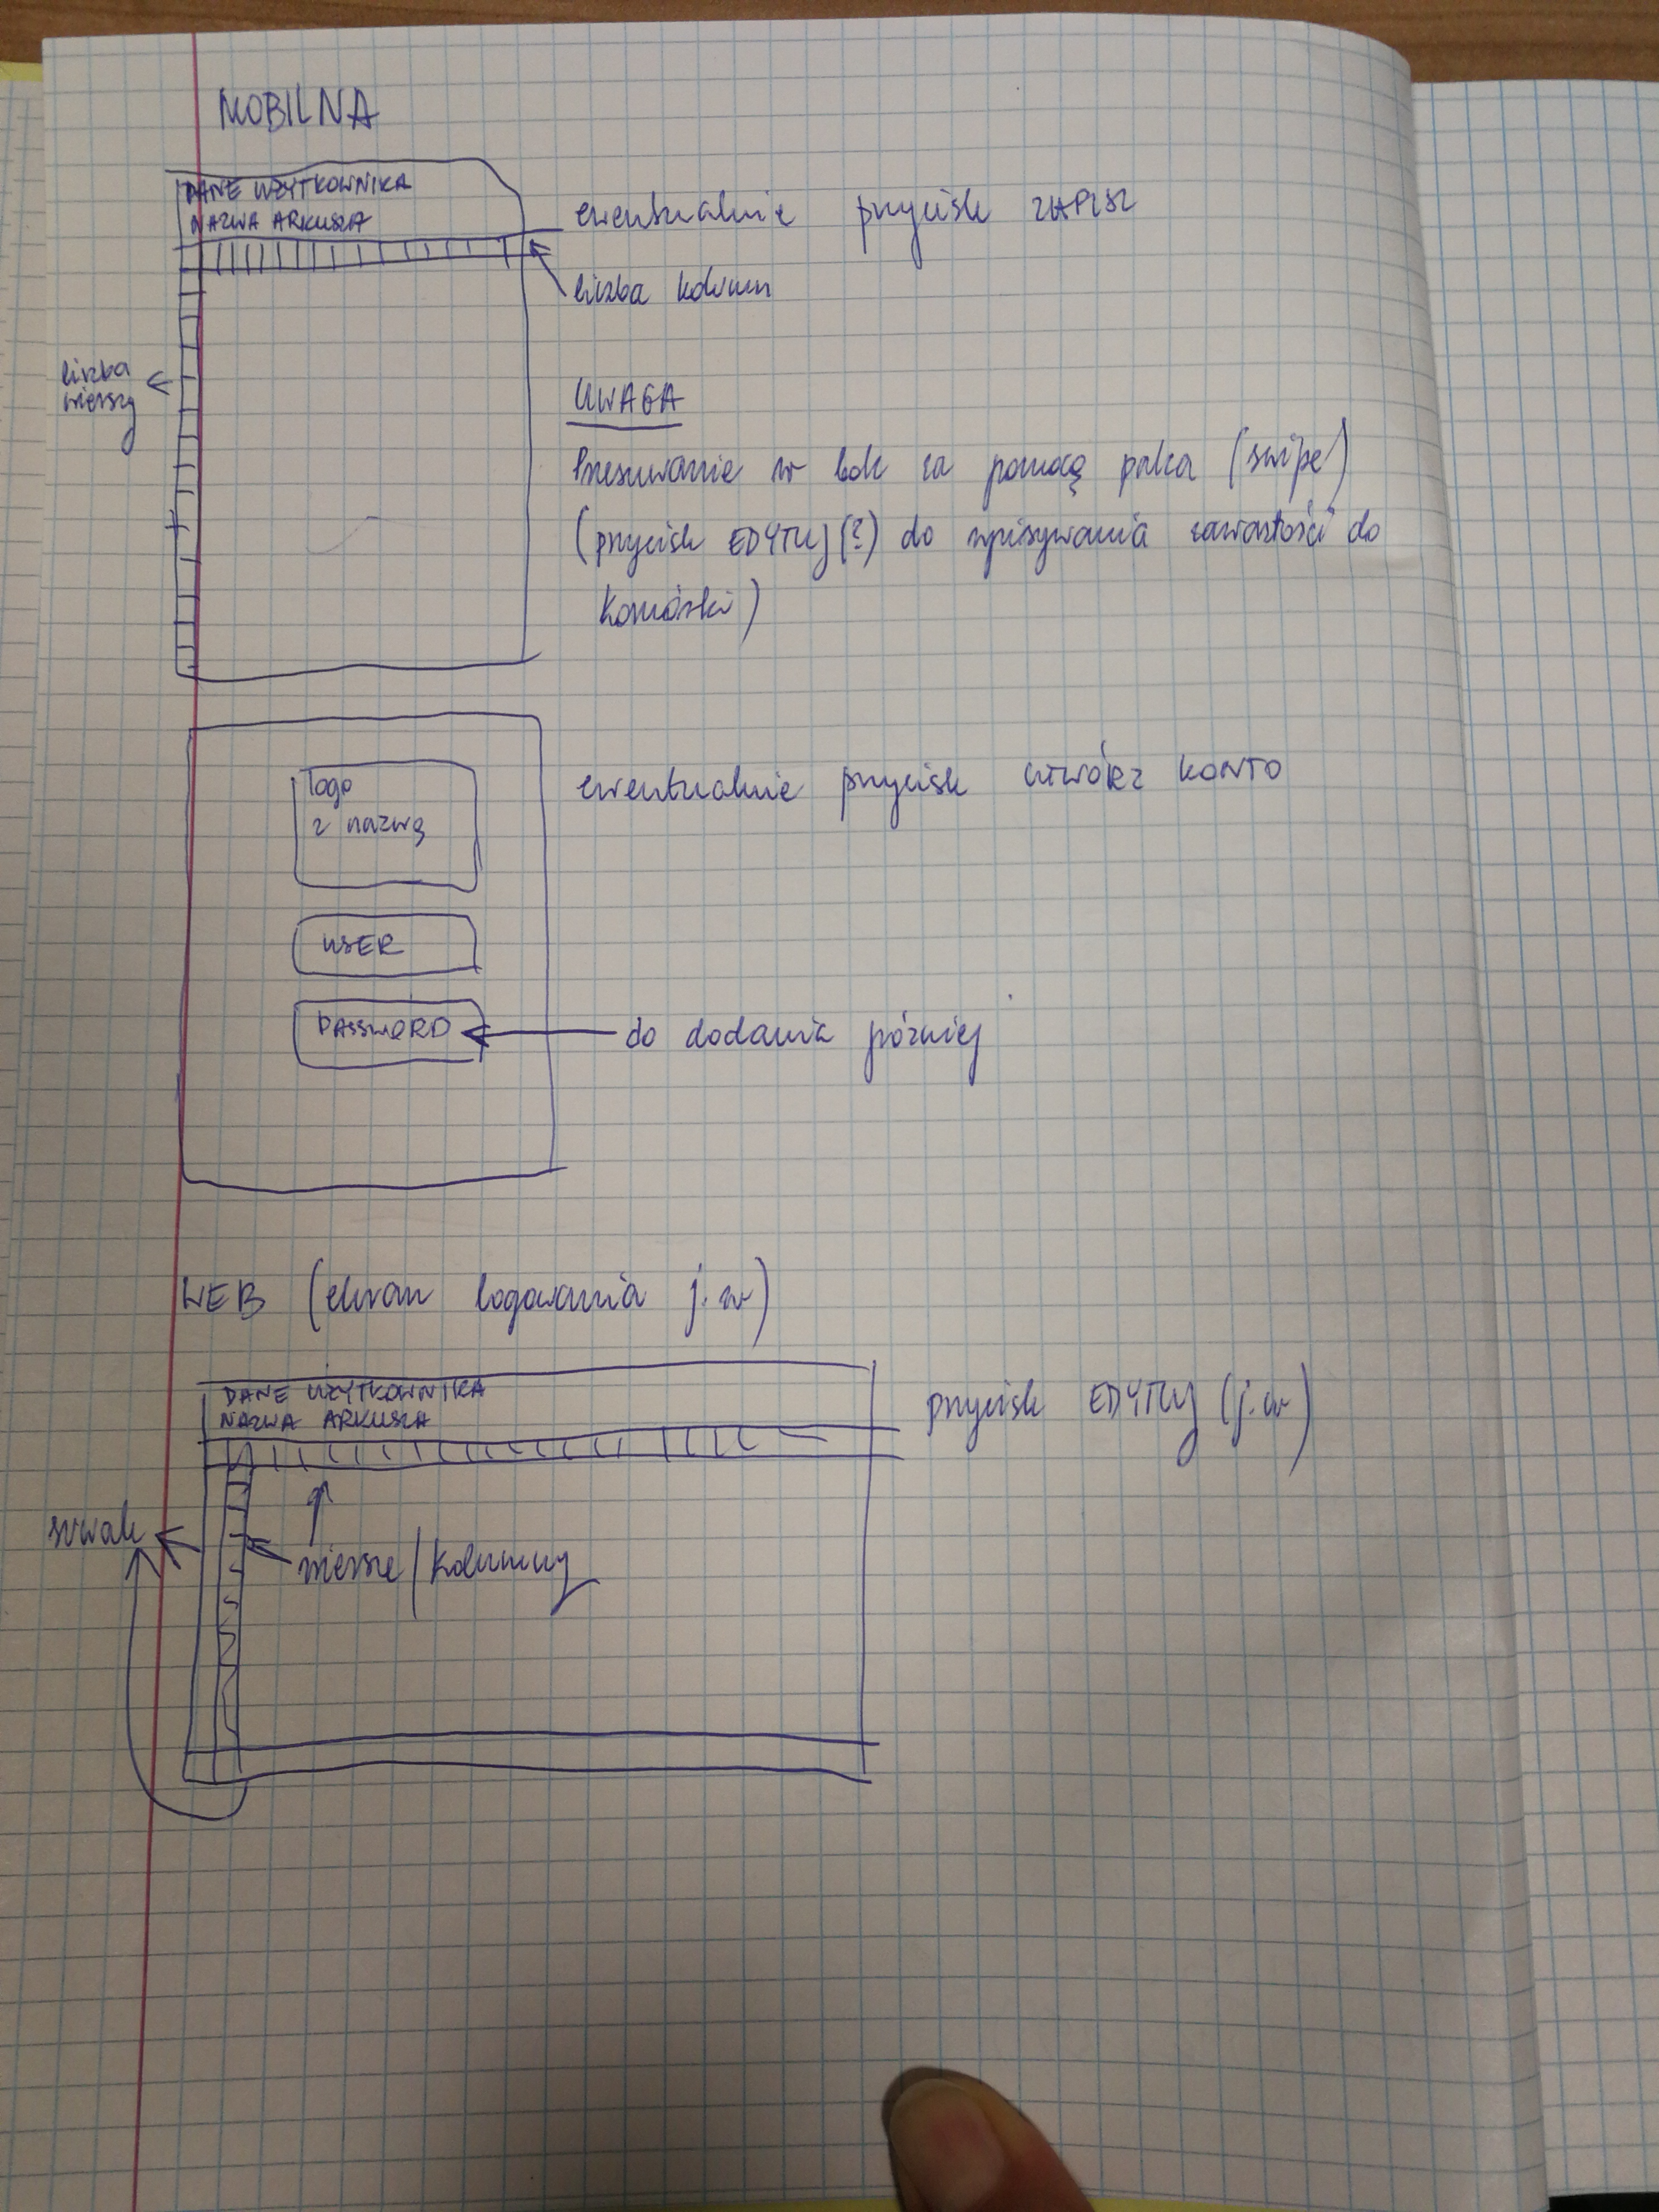 MOBILNA
DANE UŻYTKOWNIKA
NAZWA ARKUSZA
ewentualnie przycisk ZAPISZ
liczba kolumn
liczba
wierszy
UWAGA
Przesuwanie w bok za pomocą palca (swipe)
(przycisk EDYTUJ (?) do wpisywania zawartości do
komórki)
logo
z nazwą
ewentualnie przycisk UTWÓRZ KONTO
USER
PASSWORD
do dodania później
WEB (ekran logowania j.w)
DANE UŻYTKOWNIKA
NAZWA ARKUSZA
przycisk EDYTUJ (j.w)
suwak
wiersze/kolumny